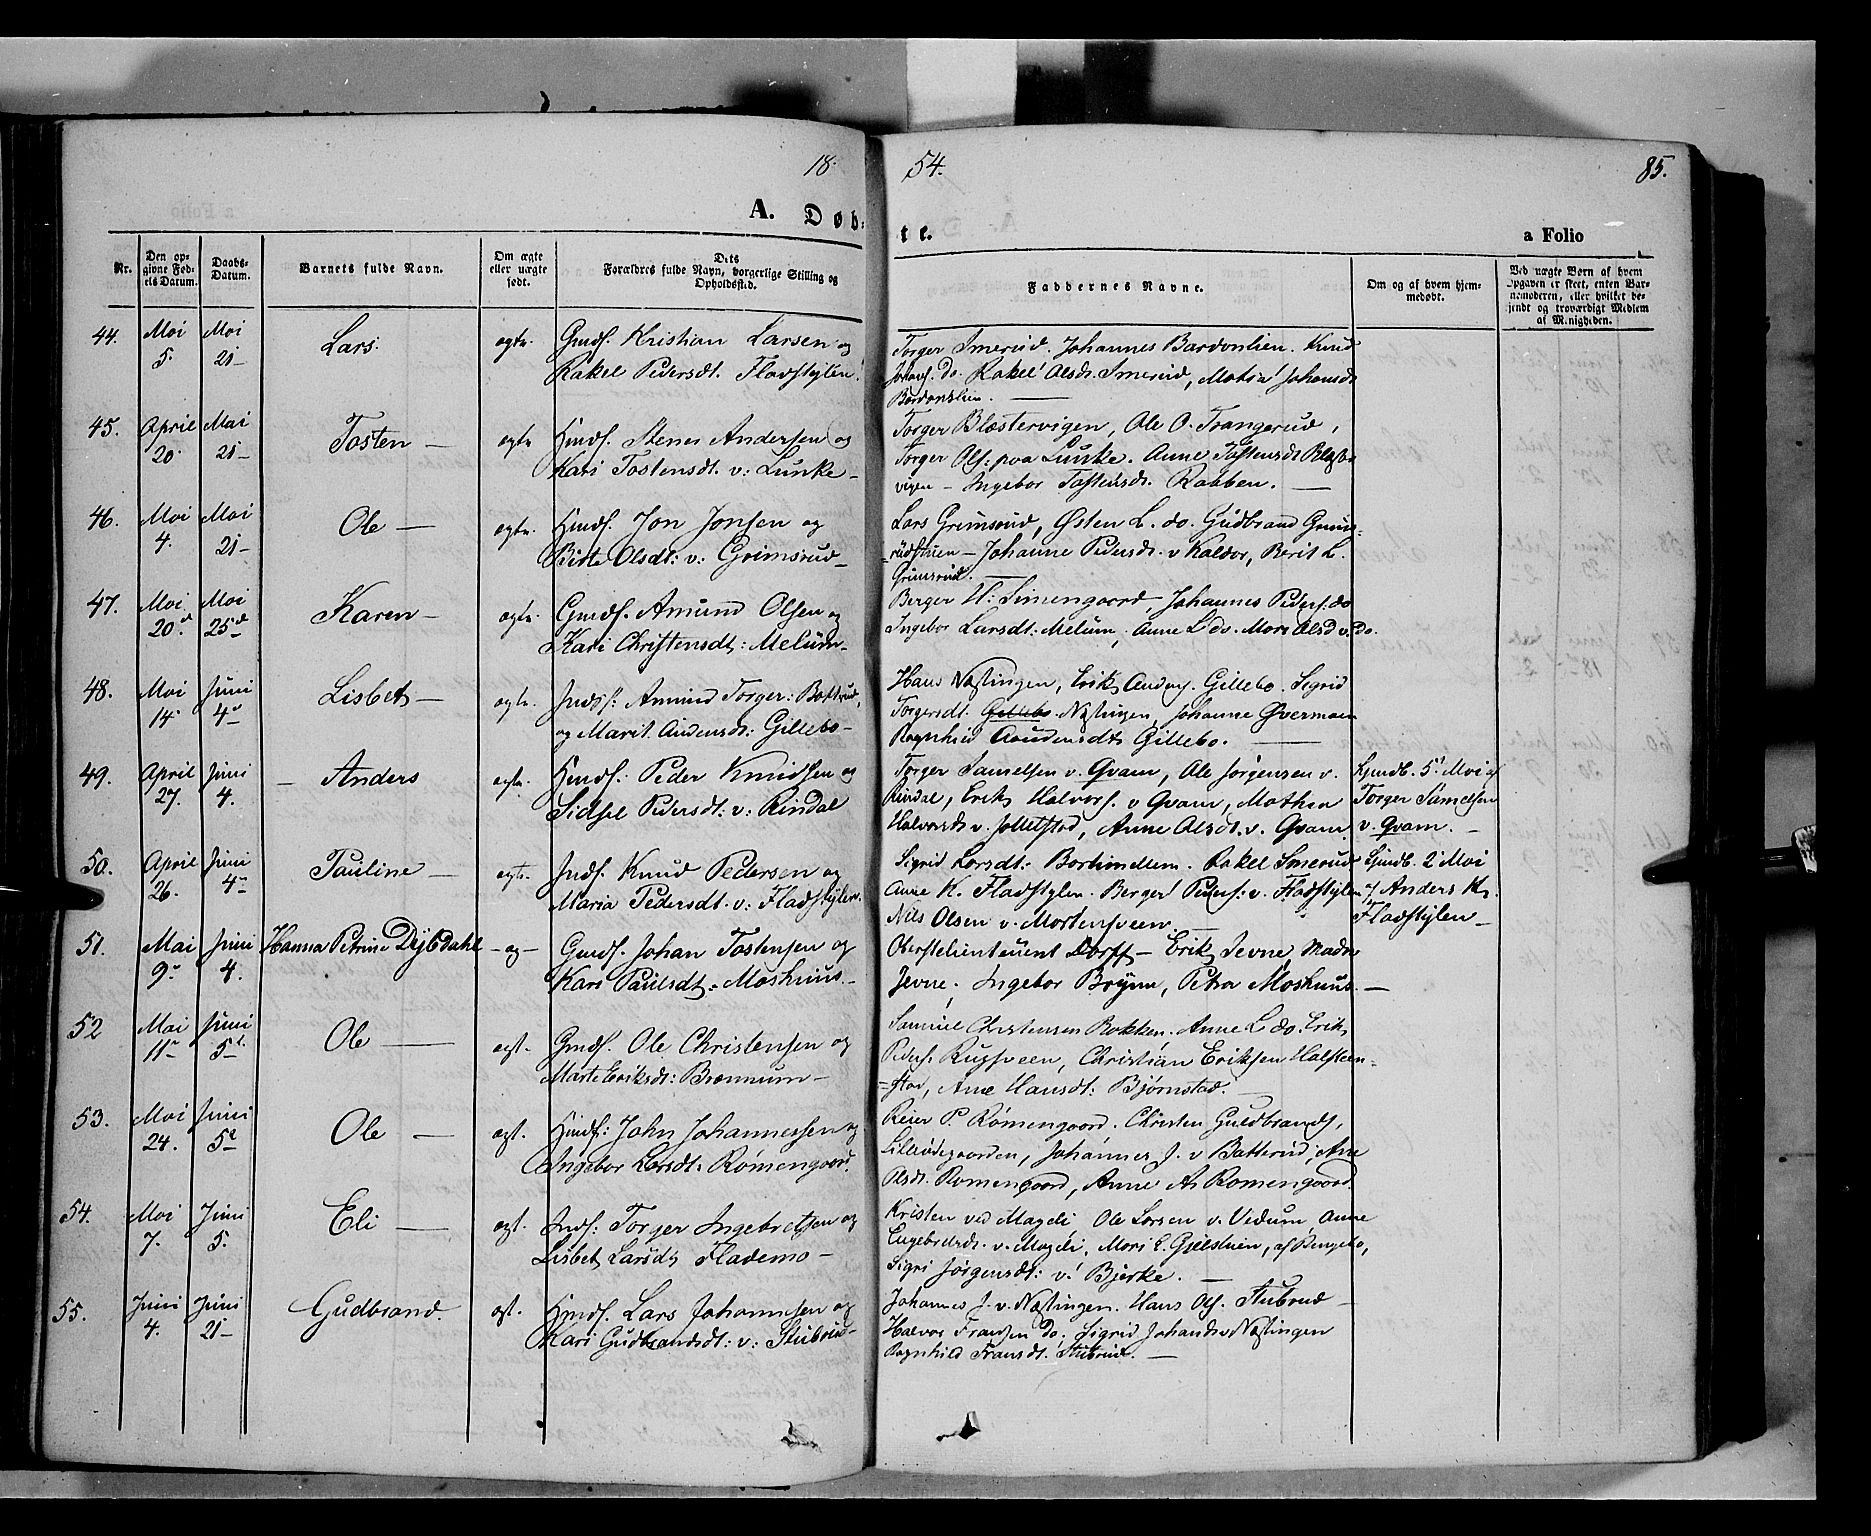 18
54.
85.
A. Døb-
te.
a Folio
Nr.
Den op-
givne Fød-
els Datum.
Daabs-
Datum.
Barnets fulde Navn.
Om ægte
eller uægte
født.
Dets
Forældres fulde Navn, borgerlige Stilling og
Opholdssted.
Faddernes Navne.
Om og af hvem hjem-
medøbt.
Ved uægte Børn af hvem
Opgaven er skeet, enten Bar-
nemoderen, eller hvilket be-
kjendt og troværdigt Medlem
af Menigheden.
44. Mai 5. Mai 21 Lars. ægte.
Gmdf. Kristian Larsen og
Rakel Pedersdt. Fladstylen.
Torger Smerud. Johannes Bardonlien. Knud
Johans. do. Rakel Olsdr. Smerud, Matia Johansdr
Bardonslien.
45. April 20. Mai 21 Tosten ægte
Hmdf. Stener Andersen og
Kari Tostensdt. v: Lunke
Torger Blæstervigen, Ole O. Trangerud,
Torger Ols: paa Lunke. Anne Tostensdt Blæster
vigen - Ingebor Tostensdr. Rabben.
46. Mai 4. Mai 21 Ole ægte.
Hmdf. Jon Jonsen og
Birte Olsdt: v: Grimsrud
Lars Grimsrud, Østen L. do. Gudbrand Grims-
rudstuen - Johanne Pedersdt. v Kaldor, Berit L.
Grimsrud.
47. Mai 20. Mai 25 Karen ægte.
Gmdf. Amund Olsen og
Kari Christensdt: Melum
Berger H: Simengaard, Johannes Peders. do
Ingebor Larsdt: Melum, Anne L do. Mari Olsd v. do.
48. Mai 14 Juni 4 Lisbet ægte.
Indsf: Amund Torger: Batterud,
og Marit Audensdt: Gillebo
Hans Næstingen, Erik Anders. Gillebo. Sigrid
Torgersdt. Gillebo Næstingen, Johanne Øvermoen
Ragnhild Audensdt Gillebo.
49. April 27. Juni 4. Anders ægte.
Hmdf: Peder Knudsen og
Sidsel Pedersdt: v: Rindal
Torger Samelsen v. Qvam, Ole Jørgensen v.
Rindal, Erik Halvors. v Qvam, Mathea
Halvorsdt v. Jolletstad, Anne Olsdt. v. Qvam.
Hjmdb. 5. Mai af
Torger Samelsen
v. Qvam.
50. April 26. Juni 4 Pauline ægte.
Indf. Knud Pedersen og
Maria Pedersdt. v: Fladstylen.
Sigrid Larsdt: . Rakel Smerud
Anne K. Fladstylen. Berger Peders: v. Fladstylen
Nils Olsen v. Mortensveen.
Hjmdb. 2 Mai
af Anders K.
Fladstylen
51. Mai 9 Juni 4. Hanna Petrine Dybdahl - og -
Gmdf. Johan Tostensen og
Kari Paulsdt. Moshuus
Oberstlieuteuent Dorff - Erik Jevne, Madm
Jevne. Ingebor Bryne, Petra Moshuus.
52 Mai 11 Juni 5 Ole ægt.
Gmdf. Ole Christensen og
Marte Eriksdt: Brænnum
Samuel Christensen Bakken. Anne L do. Erik
Peders. Rugsveen, Christian Eriksen Halsteen-
-stad, Ane Hansdt: Bjørnstad.
53. Mai 24. Juni 5 Ole ægt.
Hmdf: John Johannessen og
Ingebor Larsdt. Rømengaard.
Reier P. Rømengaard. Christen Guldbrands,
Lillerødegaarden, Johannes J. v Batterud, Ane
Olsdt. Romengaard, Anne A. Romengaard.
54. Mai 7. Juni 5. Eli ægt.
Indf: Torger Ingebretsen og
Lisbet Larsdt Flademo
Kristen ved Magdi, Ole Larsen v. Vedum, Anne
Engebretsdt. v. Magdi, Mari E. Gjelstuen, af Ringebo,
Sigri Jørgensdt: v. Bjerke.
55. Juni 4. Juni 21 Gudbrand. ægt.
Hmdf. Lars Johannesen og
Kari Gudbrandsdt: v: Stubrud
Johannes J. v. Næstingen. Hans Ols. Stubrud
Halvor Fransen do. Sigrid Johansdr Næstingen
Ragnhild Fransdt. Stubrud.